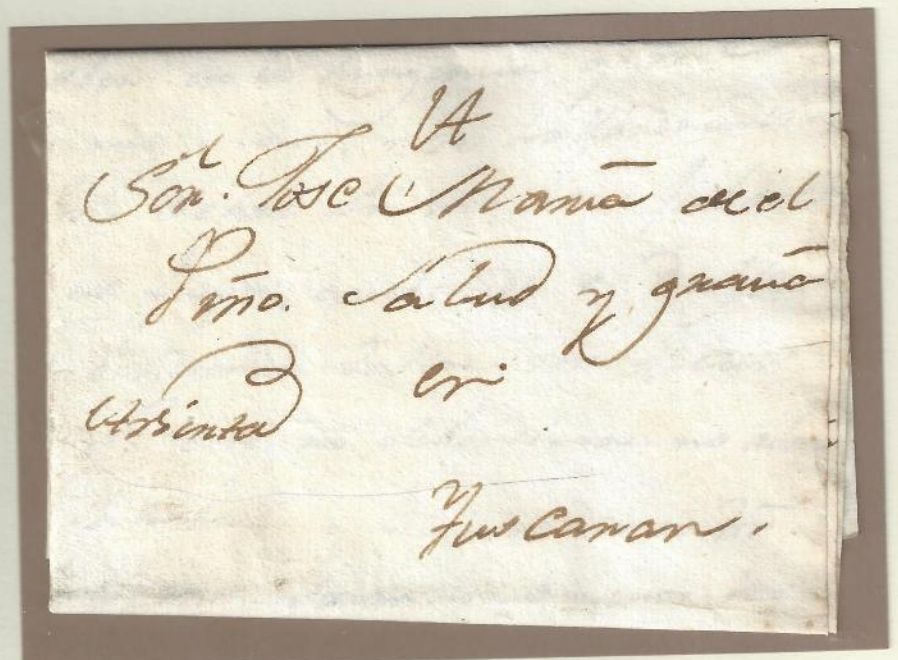 A
Sor. Jose Maria del
Pino. Salud y gracia
en
Yuscaran.